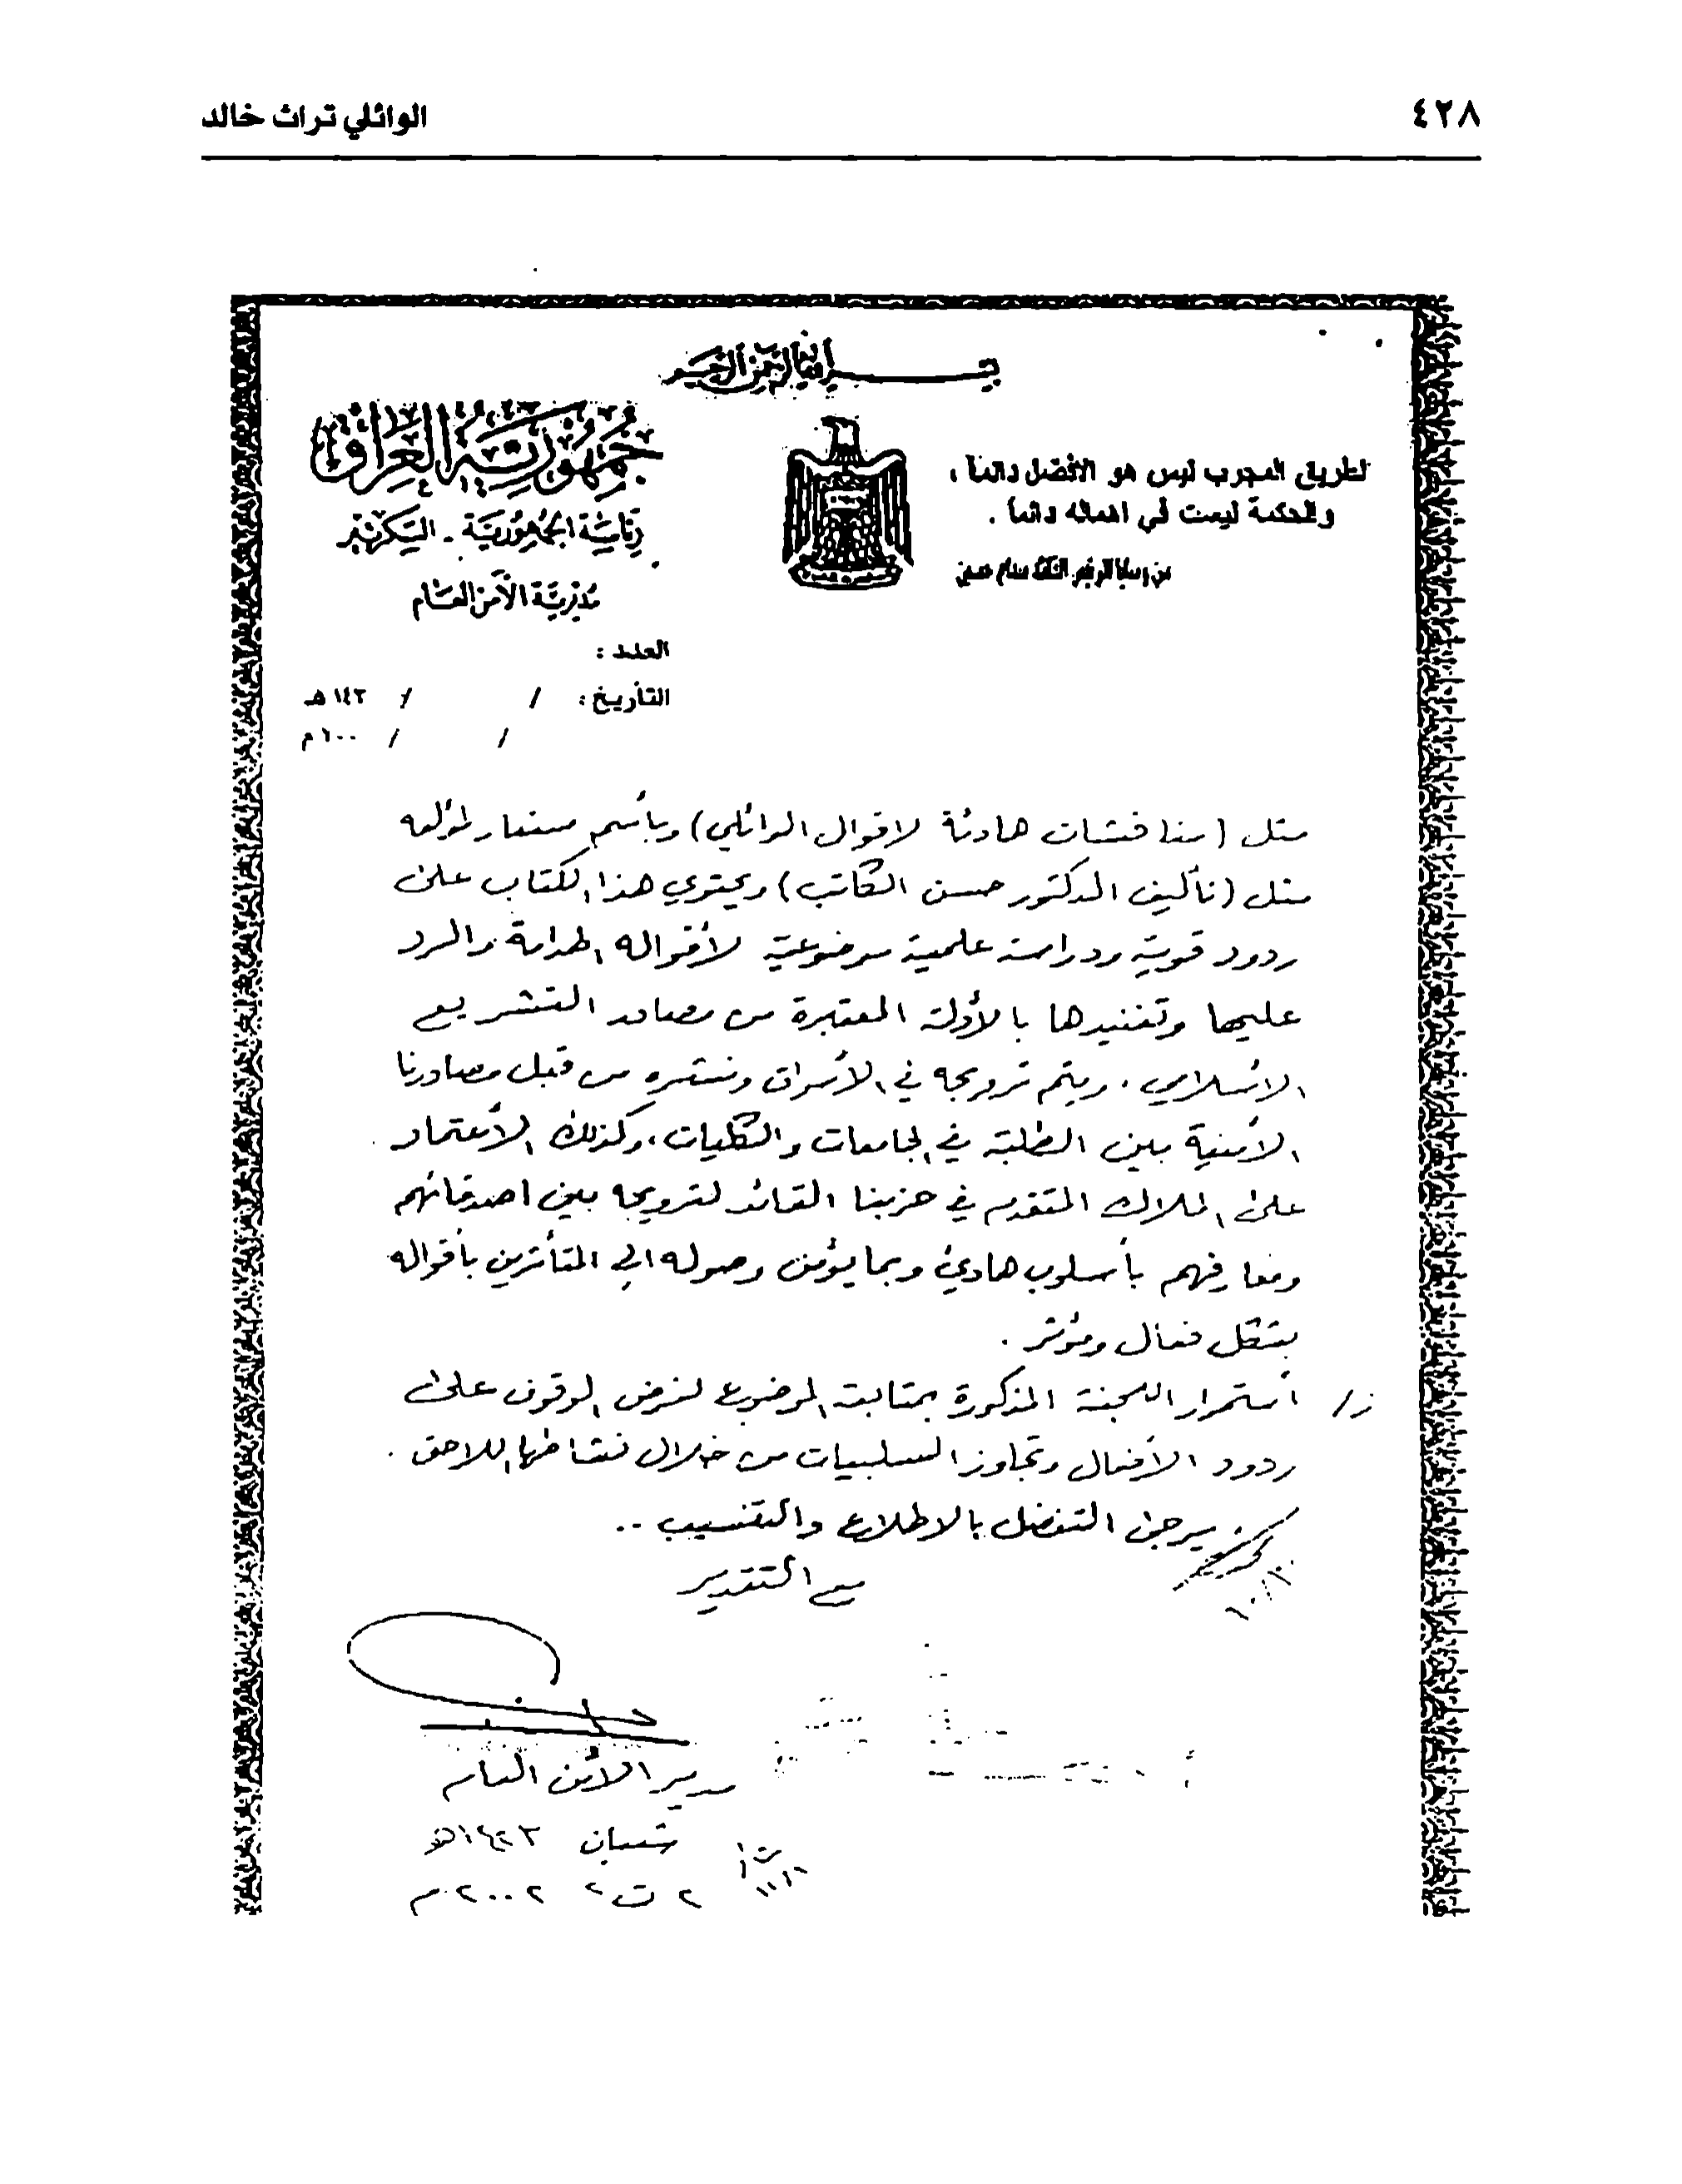 ٤٢٨
الوائلي تراث خالد
بسم الله الرحمن الرحيم
جمهورية العراق
رئاسة الجمهورية - السكرتير
مديرية الأمن العام
الطريق المجرب ليس هو الافضل دائماً ،
والحكمة ليست في اهماله دائماً .
من وصايا الرئيس القائد صدام حسين
العدد :
التأريخ : / / ١٤٢ هـ
/ / ٢٠٠ م
مثل (مناقشات هادئة لاقوال الوائلي) وبأسم مستعار لمؤلفه
مثل (تأليف الدكتور حسن الكاتب) ويحتوي هذا الكتاب على
ردود قوية ودراسة علمية موضوعية لأقواله الهدامة والرد
عليها وتفنيدها بالأدلة المعتبرة من مصادر التشريع
الأسلامي . ويتم ترويجه في الأسواق ونشره من قبل مصادرنا
الأمنية بين الطلبة في الجامعات والكليات ، وكذلك الأعتماد
على الملاك المتقدم في حزبنا القائد لترويجه بين اصدقائهم
ومعارفهم بأسلوب هادئ وبما يؤمن وصوله الى المتأثرين بأقواله
بشكل فعال ومؤثر .
ز/ أستمرار اللجنة المذكورة بمتابعة الموضوع لغرض الوقوف على
ردود الأفعال وتجاوز السلبيات من خلال نشاطها اللاحق .
يرجى التفضل بالاطلاع والتنسيب ..
مع التقدير
مدير الأمن العام
شعبان ١٤٢٣هـ
٢ ت٢ ٢٠٠٢ م